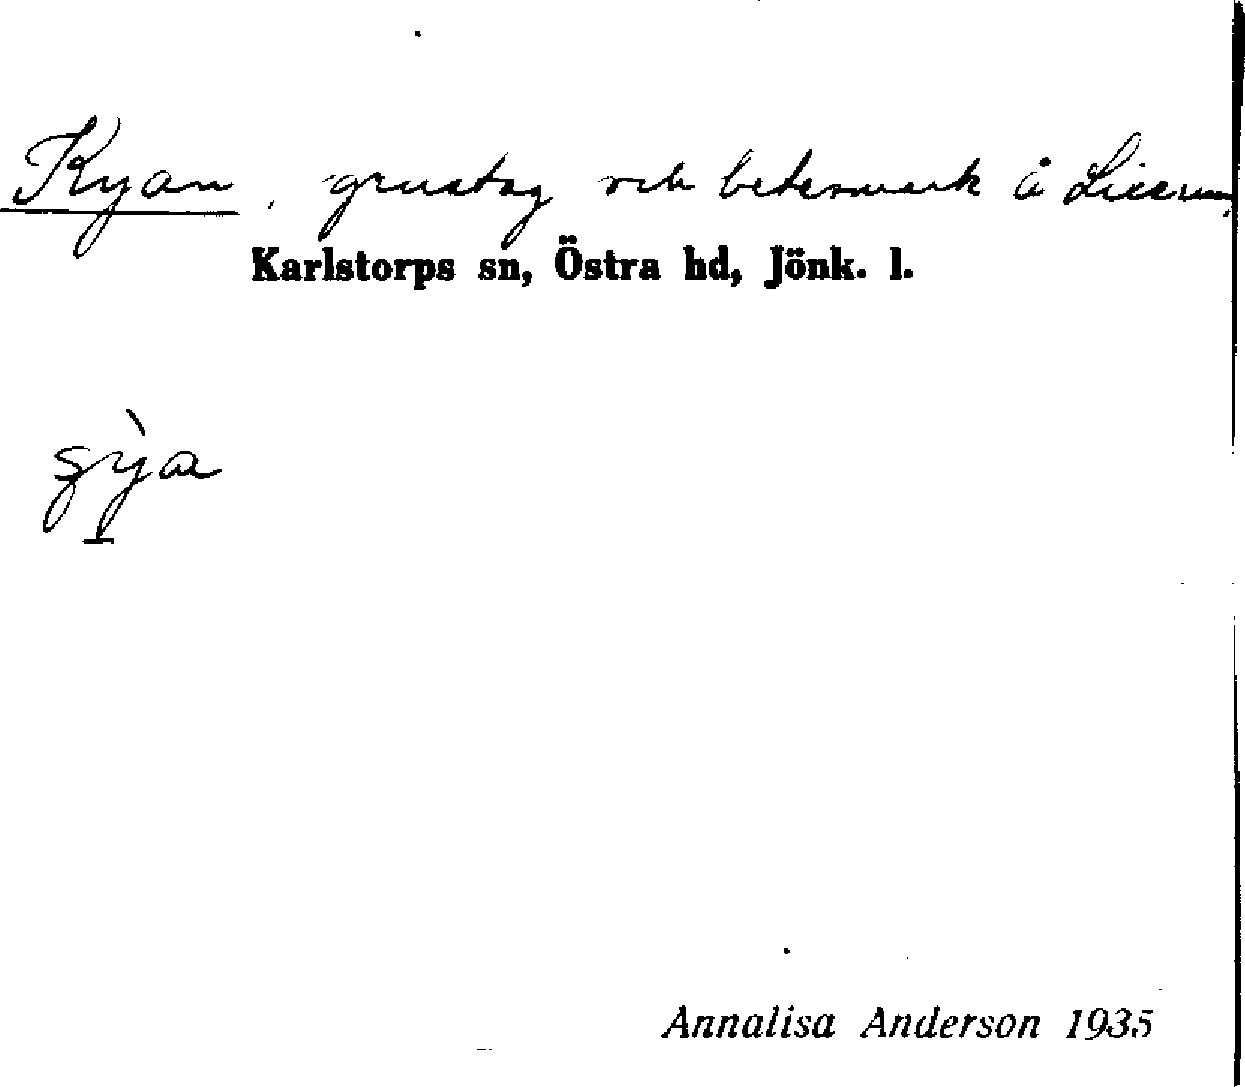 Kyan, grustag och betesmark å Liserum,
Karlstorps sn, Östra hd, Jönk. l.
Annalisa Anderson 1935